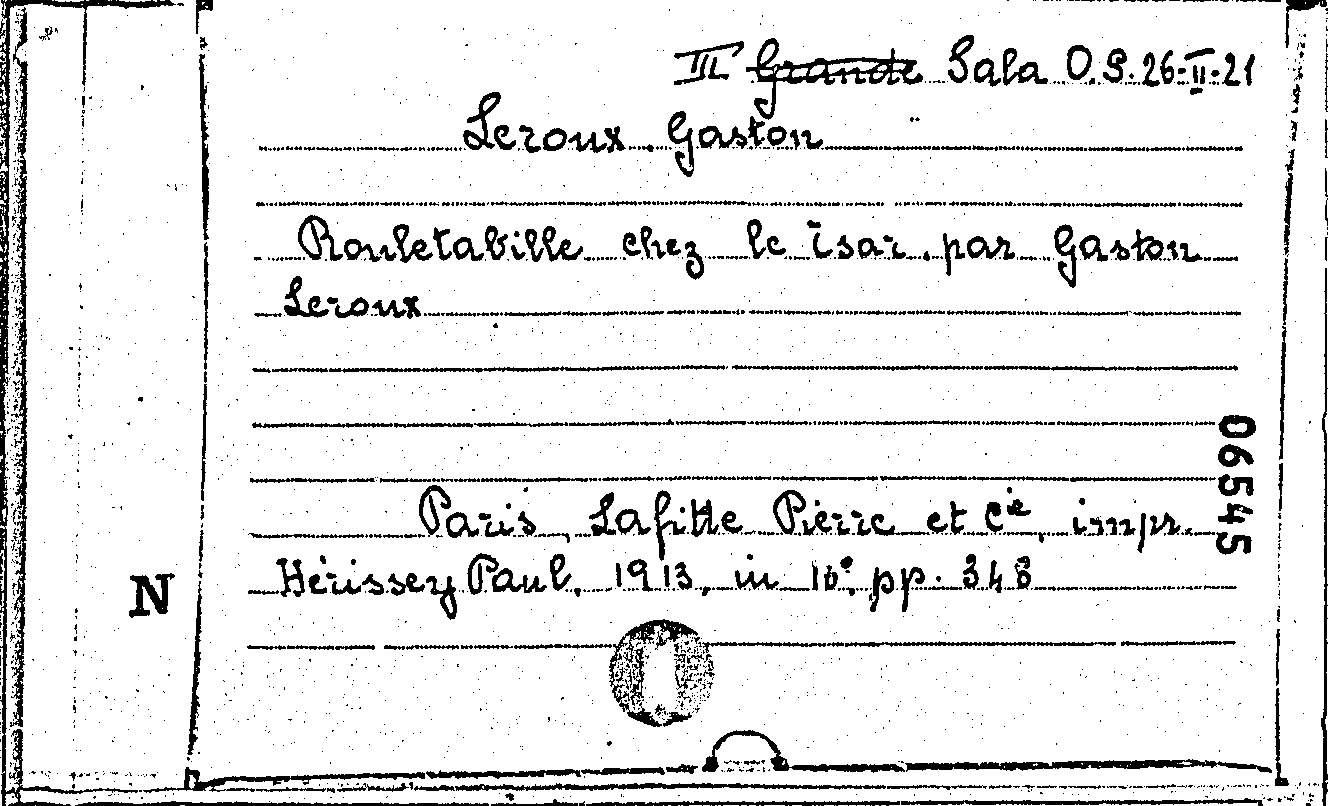 III Grande Sala O.S. 26-II-21
Leroux. Gaston
Rouletabille chez le Tsar. par Gaston
Leroux
06545
Paris, Lafitte Pierre et Cie, impr.
Hérissey Paul, 1913, in 16°, pp. 348
N